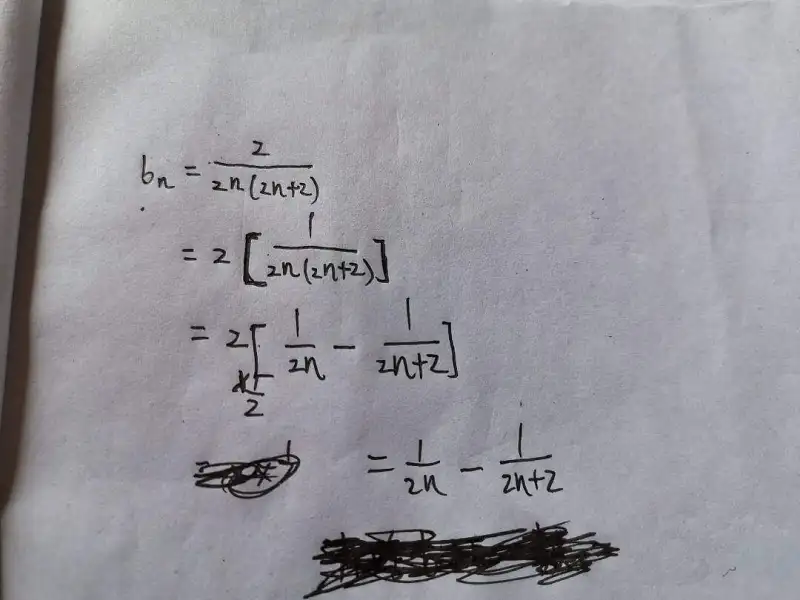 bₙ = 2/(2n(2n+2))
= 2 [1/(2n(2n+2))]
= 2 [1/(2n) - 1/(2n+2)]
× 1/2
= 1/(2n) - 1/(2n+2)